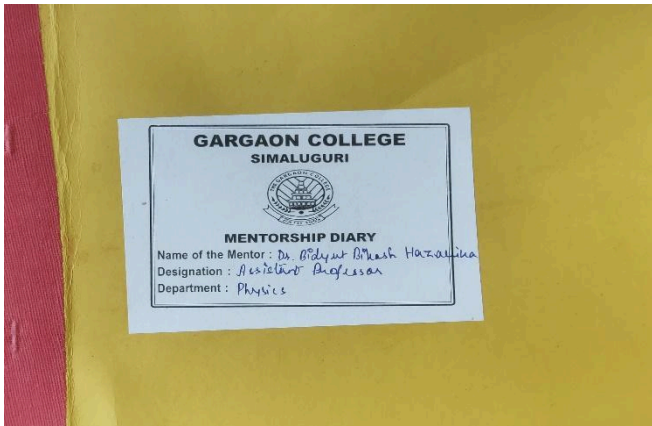 GARGAON COLLEGE
SIMALUGURI
THE GARGAON COLLEGE
MENTORSHIP DIARY
Name of the Mentor : Dr. Bidyut Bikash Hazarika
Designation : Assistant Professor
Department : Physics